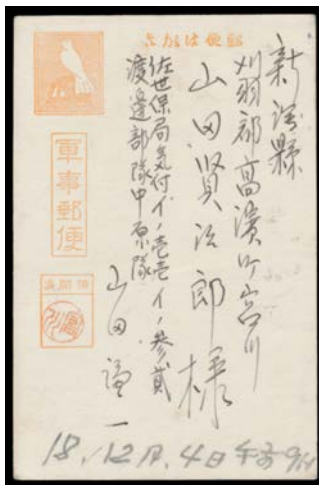 郵便はかき
新潟縣
刈羽郡高濱町宮川
山田賢次郎様
佐世保局気付イ・壱壱イ・参貳
渡邊部隊中原隊
山田謙一
軍事郵便
検閲済
18.12月.4日午前9H